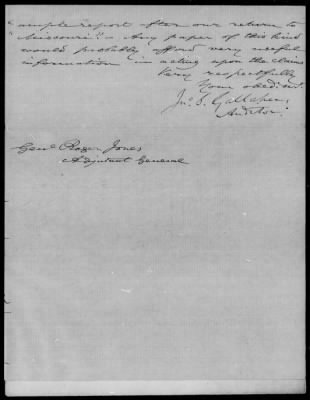 "ample report after our return to
Missouri." – Any paper of this kind
would probably afford very useful
information in acting upon the claims
Very respectfully
Your obedient.
Jno. S. Gallaher,
Auditor.
Genl. Roger Jones
Adjutant General